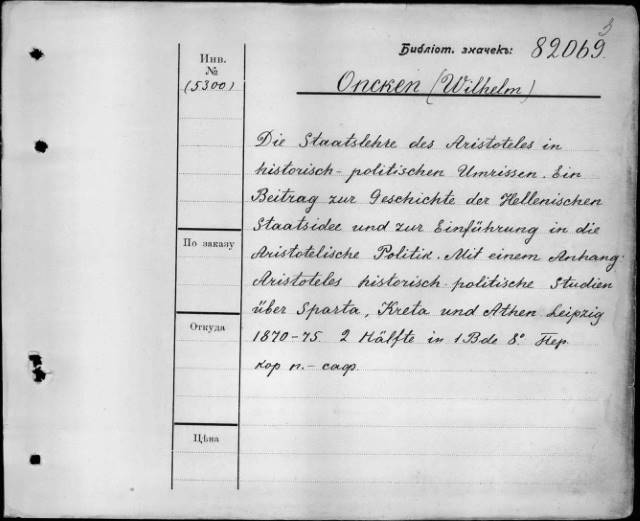 3
Библіот. значекъ: 82069
Инв.
№
(5300)
Oncken (Wilhelm)
Die Staatslehre des Aristoteles in
historisch-politischen Umrissen. Ein
Beitrag zur Geschichte der Hellenischen
Staatsidee und zur Einführung in die
Aristotelische Politik. Mit einem Anhang:
Aristoteles historisch-politische Studien
über Sparta, Kreta und Athen Leipzig
1870-75. 2 Hälfte in 1 Bde 8º. Пер.
кор п.- саф.
По заказу
Откуда
Цѣна